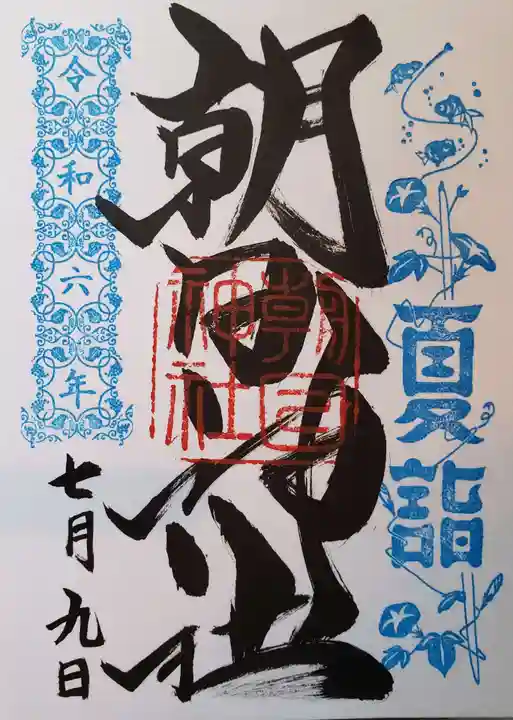 夏詣
朝日神社
朝日
神社
令和六年
七月九日